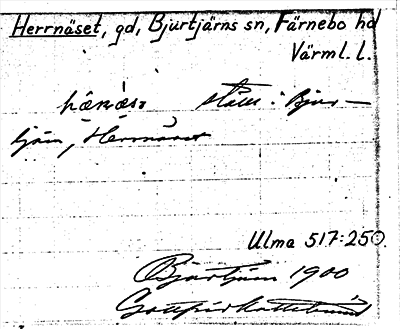 Herrnäset, gd, Bjurtjärns sn, Färnebo hd
Värml. L.
ställe i Bjur-
tjärn, Herrnäset
Ulma 517:250.
Bjurtjärn 1900
Gottfrid Kallstenius